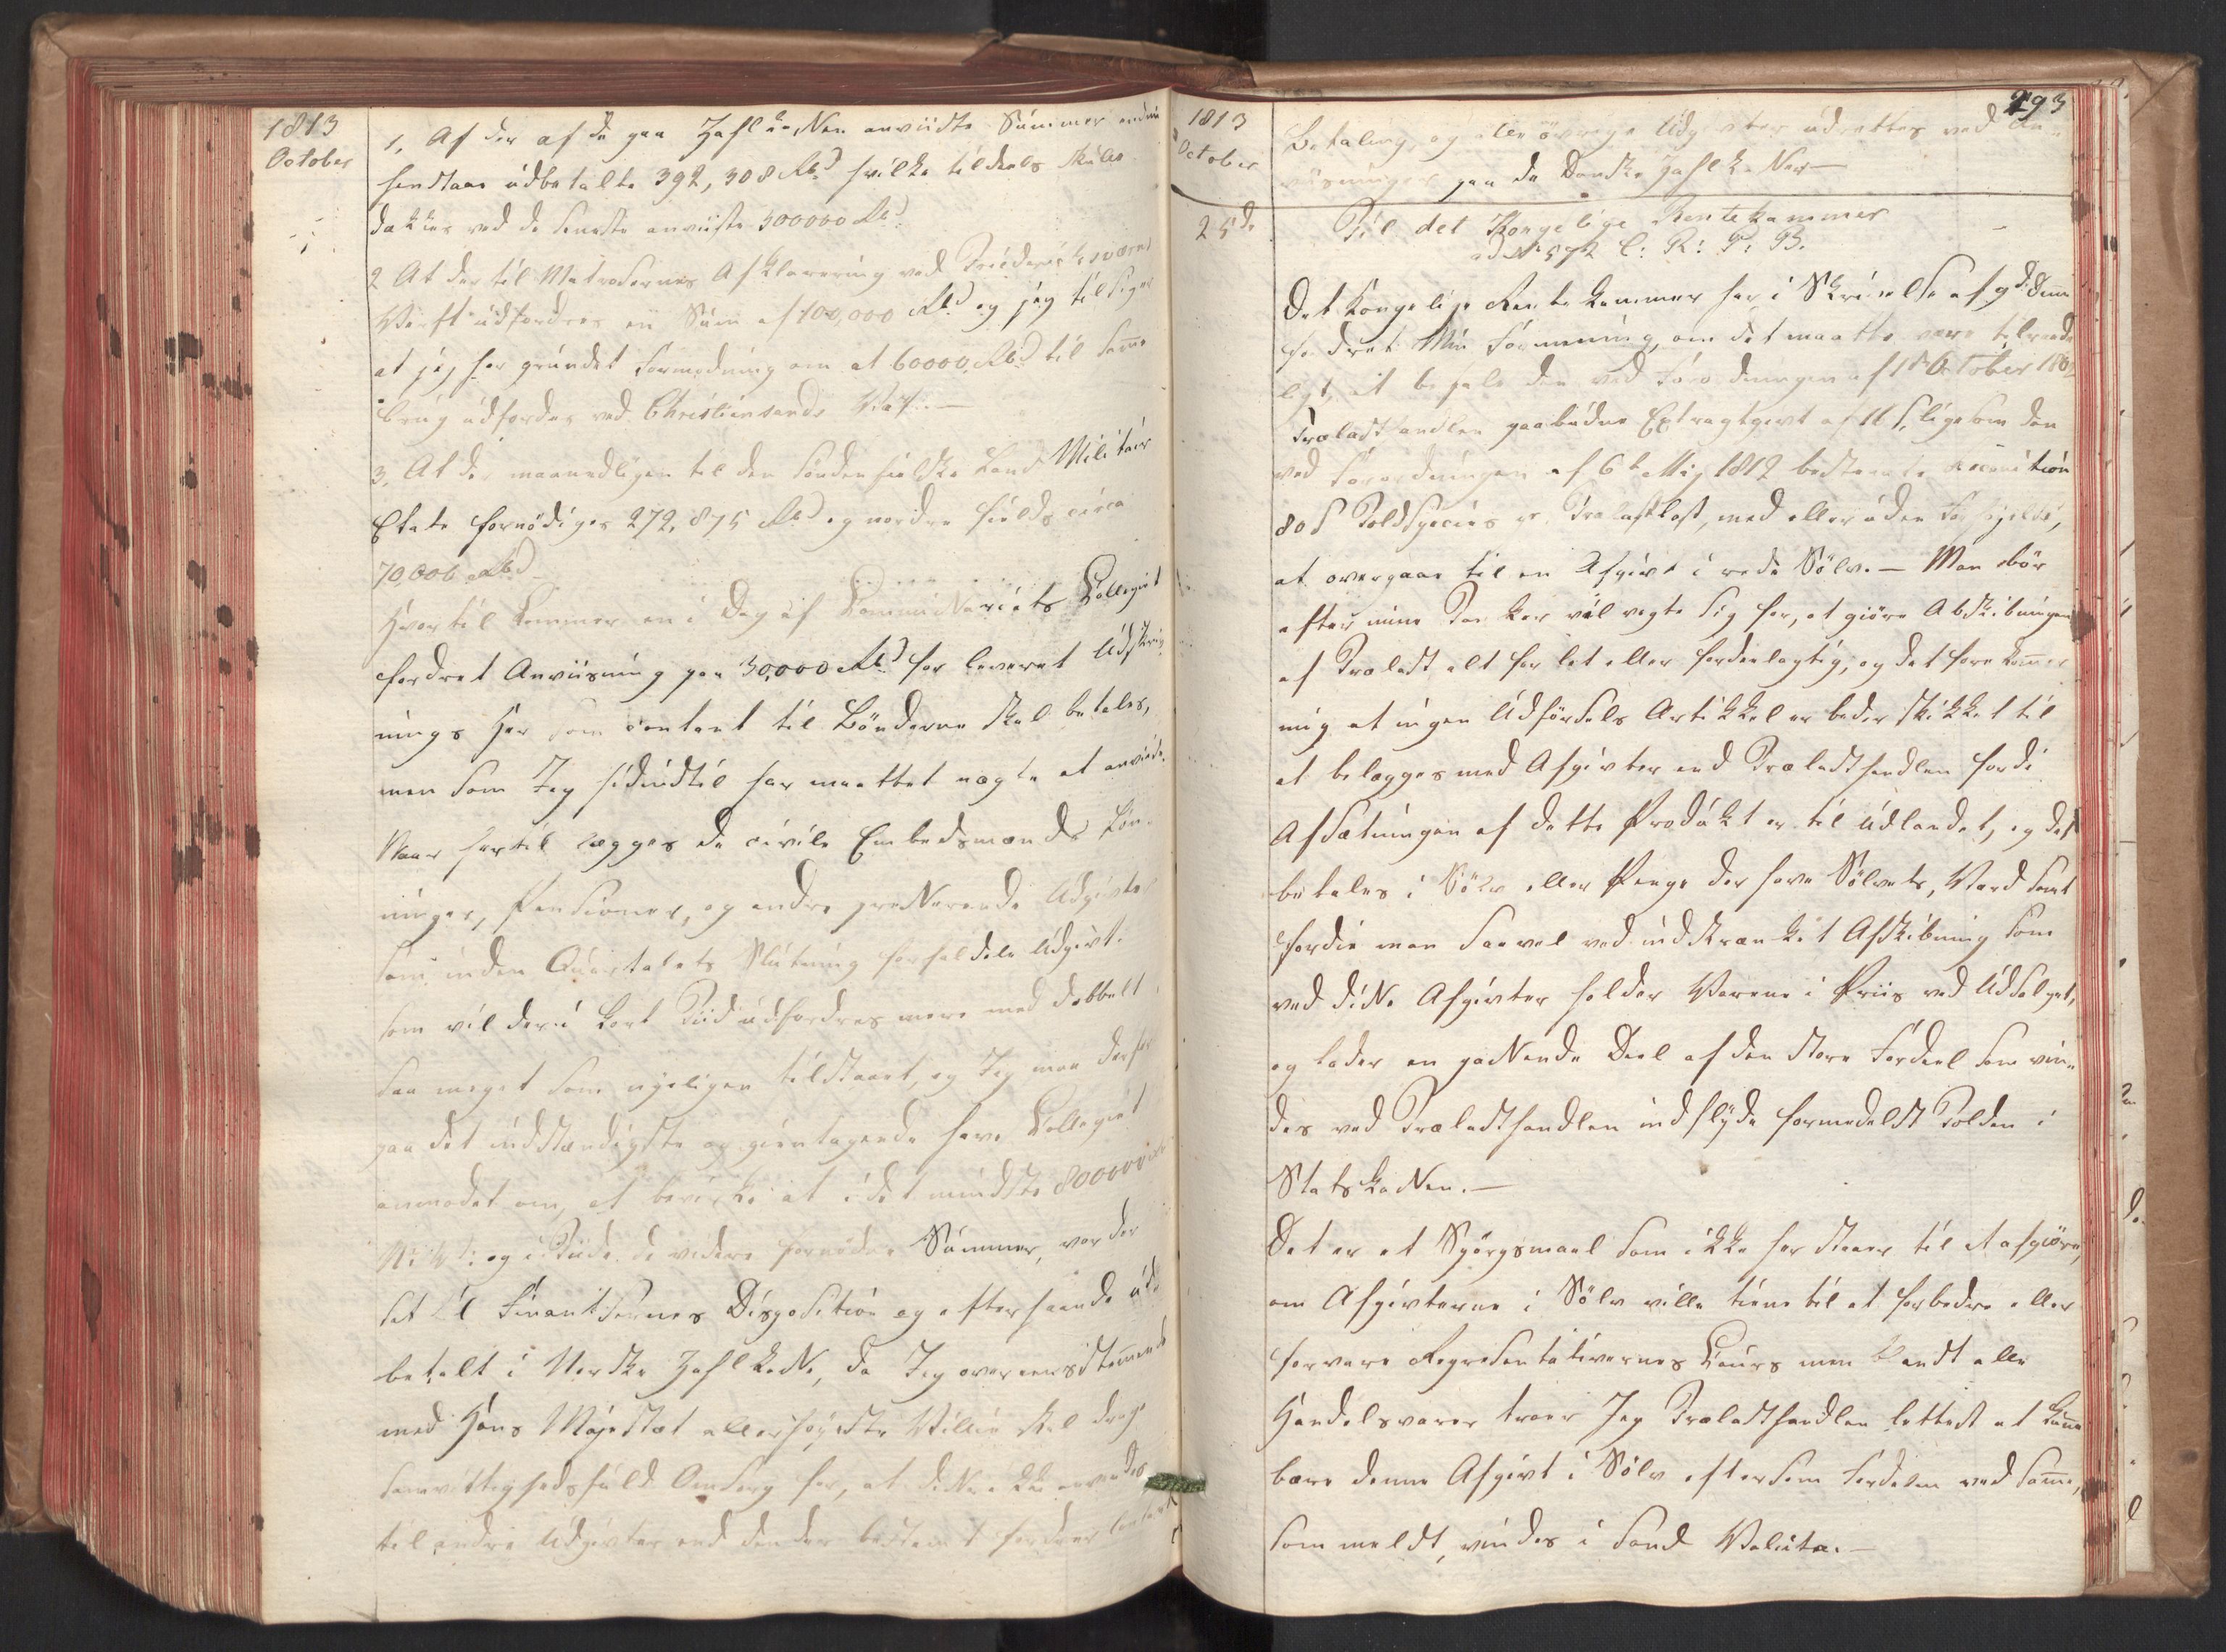 1813
October
1, Af der af de paa Zahlkassen anviiste Summer endnu
henstaae udbetalte 392,308 Rbd hvilke tildeels skulle
dækkes ved de seneste anviiste 300000 Rbd
2 At der til Matrosernes Afklarering ved Friderichsværns
Værft udfordres en Sum af 100,000 Rbd og jeg tilføyer
at jeg har grundet Formodning om at 60000 Rbd til samme
Brug udfordres ved Christiansands
3, At der maanedligen til den søndenfieldske Land Militair
Etate fornødiges 272,875 Rbd og nordenfields circa
70,000 Rbd
Hvortil kommer en i Dag af Commissariats Collegiet
fordret Anviisning paa 30,000 Rbd for leveret Udskriv
nings Høe som contant til Bønderne skal betales,
men som Jeg hidindtil har maattet nægte at anviise.
Naar hertil lægges de civile Embedsmænds Løn-
ninger, Pensioner, og andre presserende Udgivter
som inden Qvartalets Slutning forfaldele Udgivt.
som vil der i kort Tiid udfordres mere end dobbelt
saa meget som nyeligen tilstaaet, og Jeg maa derfor
paa det indstændigste og gientagende have Collegiet
anmodet om, at bevirke at i det mindste 800000
N: V: og i Tiide de videre fornødne Summer, vorder
sat til Finantsernes Disposition og efterhaanden ud-
betalt i Norske Zahlkasse, da Jeg overeensstemmende
med Hans Majestæt allerhøyeste Villie skal drage
samvittighedsfuld Omsorg for, at disse ikke anvendes
til andre Udgivter end den der bestemt fordrer contant
1813
October
293
Betaling, og alle øvrige Udgivter udrettes ved An-
viisninger paa de Danske Zahlkasser —
25de
Til det Kongelige Rentekammer
ad No 572 C: R: P: B.
Det Kongelige Rentekammer har i Skrivelse af 9de dennes
fordret Min Formening, om det maatte være tilraade-
ligt, at befale den ved Forordningen af 1ste October 1802
Trælasthandlen paabudne Extraafgivt af 11 s, ligesom den
ved Forordningen af 6te Maj 1812 bestemte Recognition
80 s Toldspecies pr. Trælastlæst, med eller uden Forhøjelse,
at overgaae til en Afgivt i rede Sølv. — Man bør
efter mine Tanker vel vogte sig for, at giøre Afskibningen
af Trælast alt for let eller fordeelagtig, og det forekommer
mig at ingen Udførsels Artikkel er bedre skikket til
at belægges med Afgivter end Trælasthandlen fordi
Afsætningen af dette Produkt er til Udlandet, og det
betales i Sølv eller Penge der have Sølvets, Værd samt
fordie man saavel ved indskrænket Afskibning som
ved disse Afgivter holder Varene i Priis ved Udsalget,
og lader en passende Deel af den store Fordeel som vin-
des ved Trælasthandlen indflyde formedelst Tolden i
Statskassen. —
Det er et Spørgsmaal som ikke her staaer til at afgiøre,
om Afgivterne i Sølv ville tiene til at forbedre eller
forværre Representativernes Cours men blandt alle
Handelsvarer troer Jeg Trælasthandlen lettest at kunne
bære denne Afgivt i Sølv eftersom Fordelen ved samme,
som meldt, vindes i sand Valuta. —